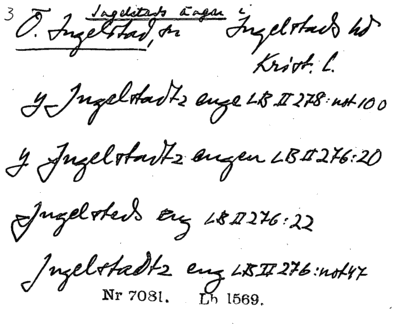 3 Ingelsteds ängar i
Ö. Ingelstad, sn Ingelstads hd
Krist. l.
y Jngelstadtz enge LB II 278:not 100
y Jngelstadtz engen LB II 276:20
Jngelsteds Eng LB II 276:22
Jngelstadtz eng LB II 276:not 47
Nr 7081. Lb 1569.